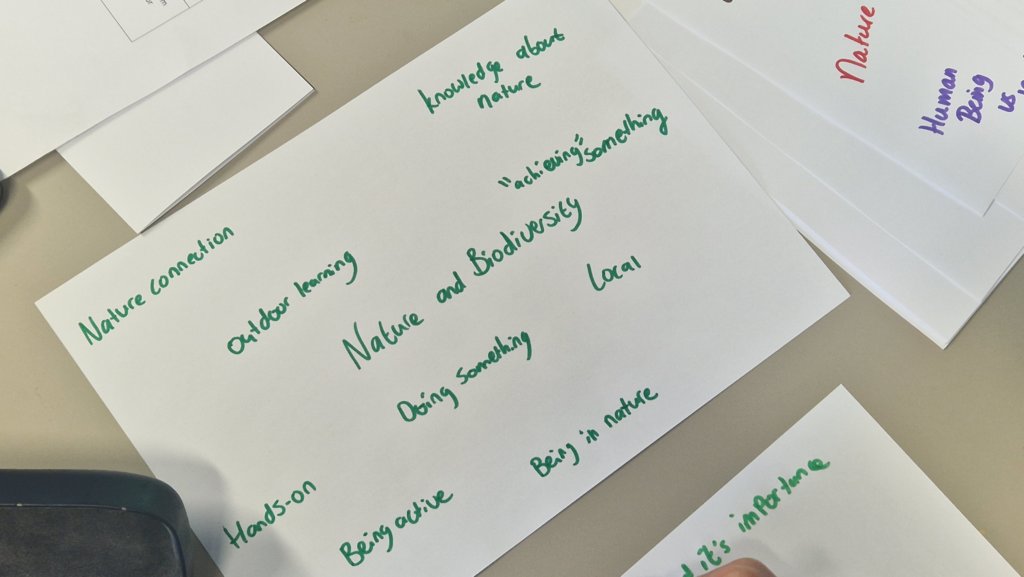 knowledge about
nature
"achieving" something
Nature connection
outdoor learning
Nature and Biodiversity
Local
Doing something
Being in nature
Hands-on
Being active
Nature
Human
Being
us
it's importance